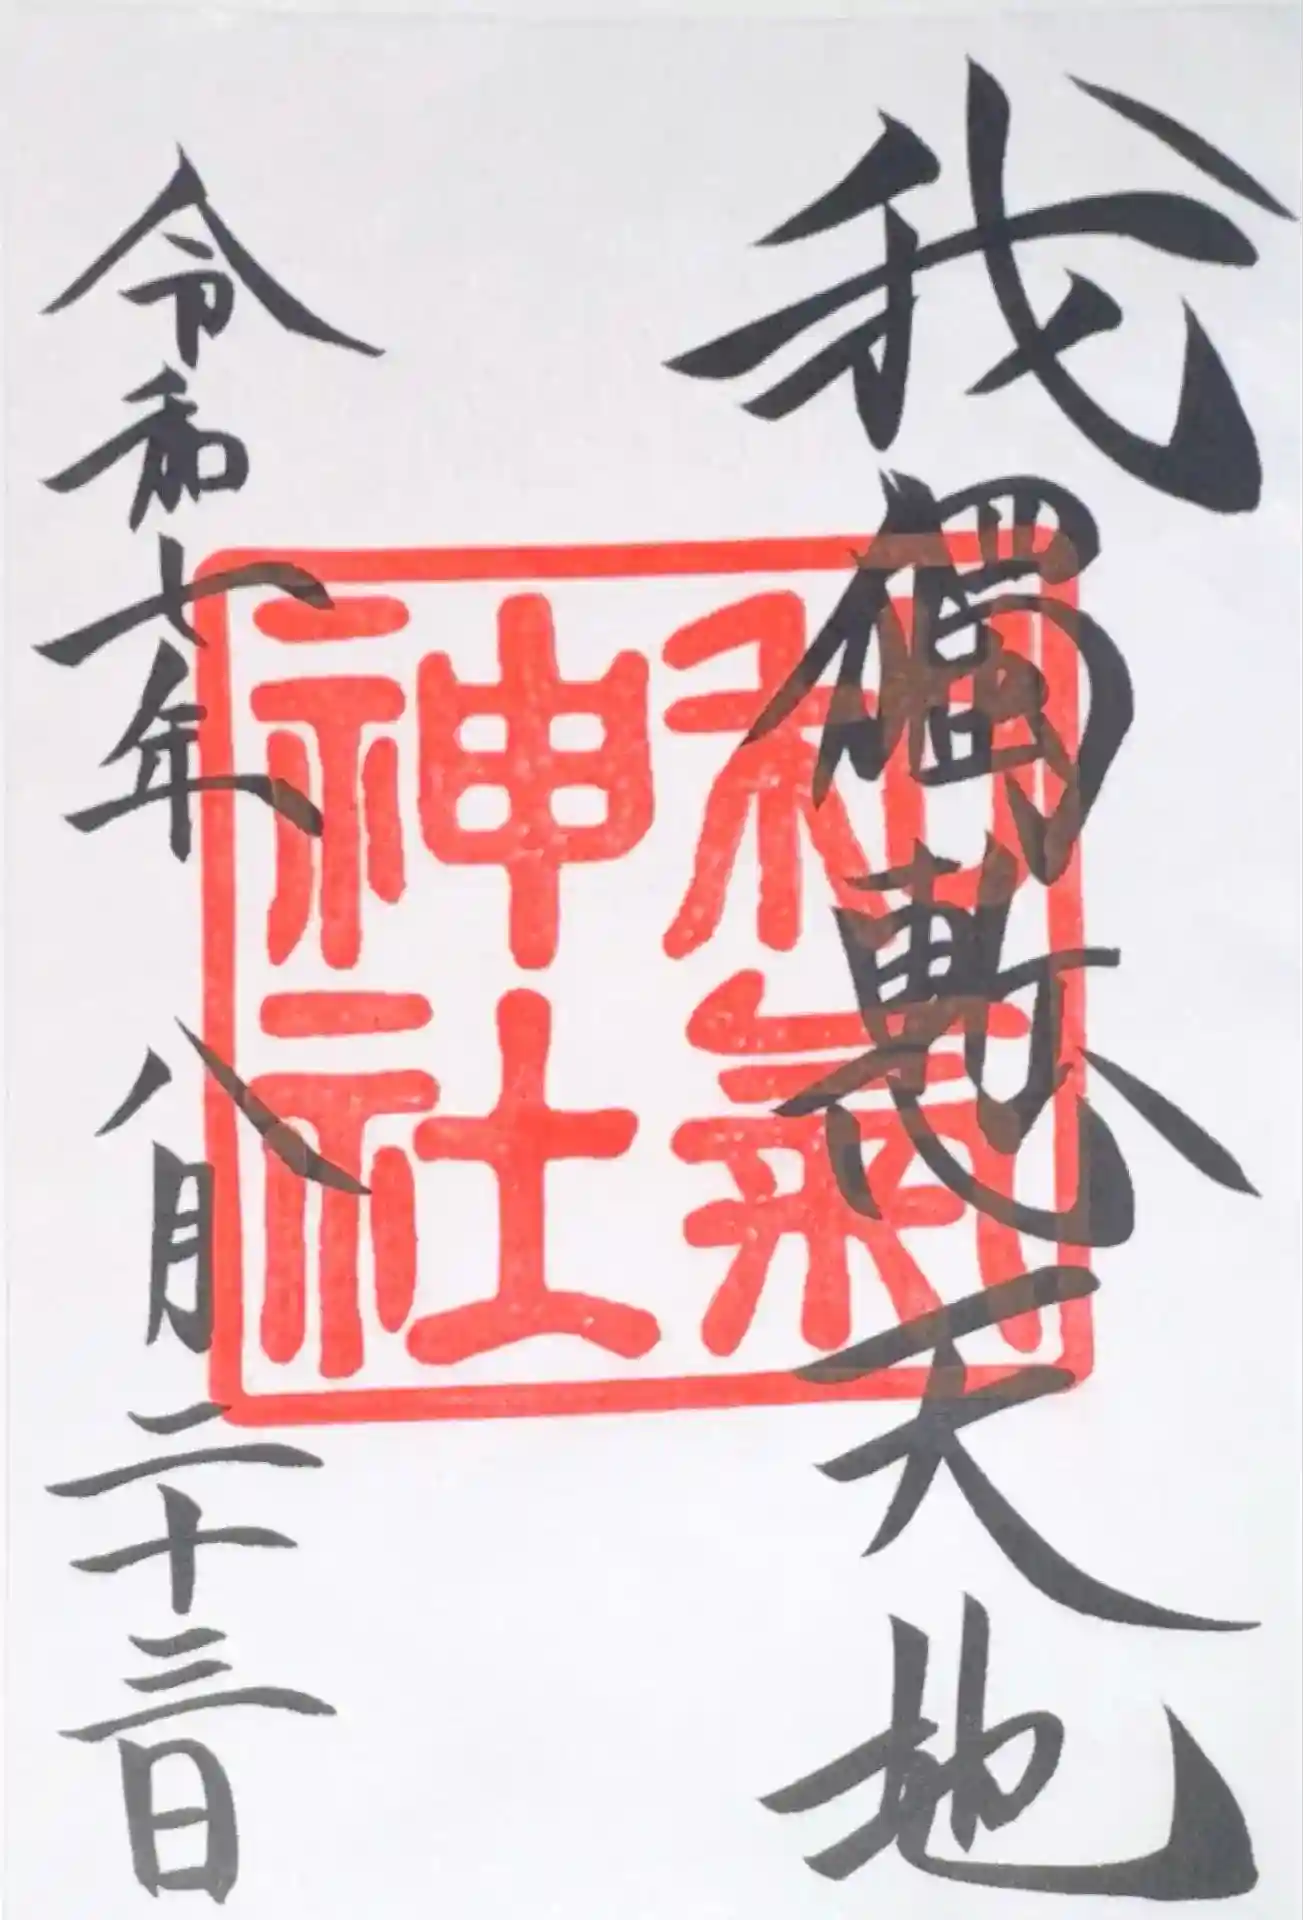 我獨慙天地
和氣
神社
令和七年 八月二十三日